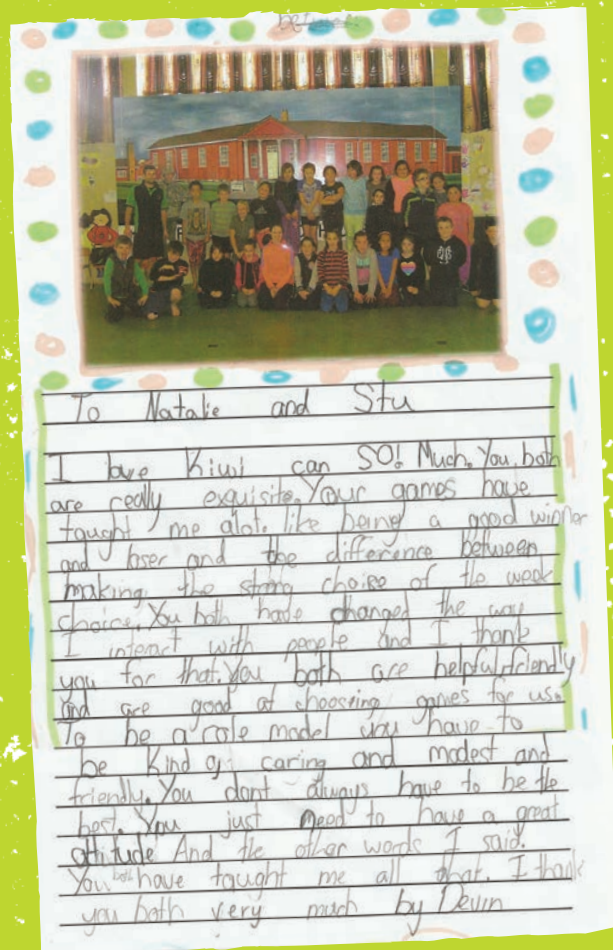 between
To Natalie and Stu
I love Kiwi can SO! Much. You both
are really exquisite. Your games have
taught me alot. like being a good winner
and loser and the difference between
making the strong choise of the week
choice. You both have changed the way
I interact with people and I thank
you for that. You both are helpful, friendly
and are good at choosring games for us.
To be a role model you have to
be Kind, caring and modest and
friendly. You dont always have to be the
best. You just need to have a great
attitude And the other words I said.
You both have taught me all that. I thank
you both very much by Devin